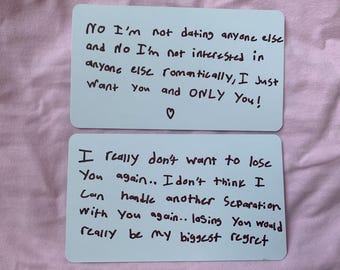 No I'm not dating anyone else
and No I'm not interested in
anyone else romantically, I just
want you and ONLY You!
♡
I really don't want to lose
You again.. I don't think I
can handle another separation
with You again.. losing You would
really be my biggest regret